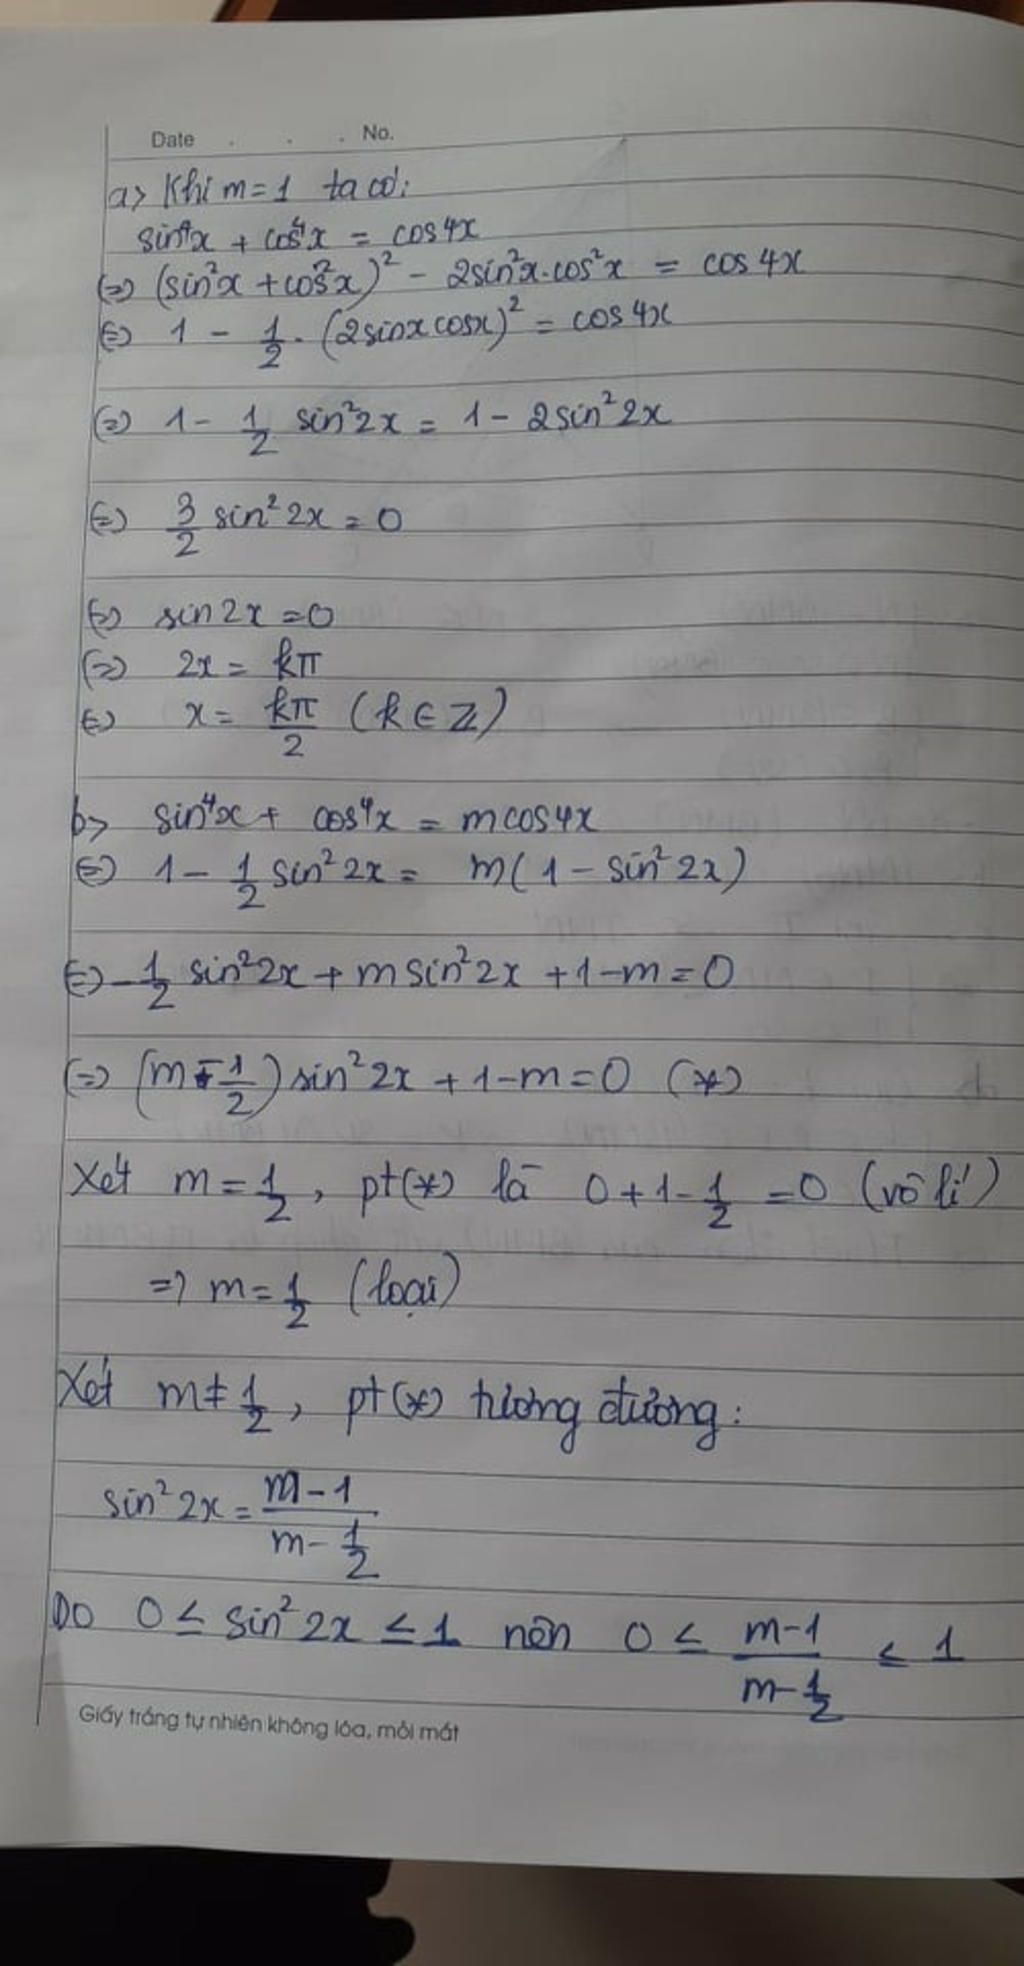 Date . . . No.
a> Khi m = 1 ta có:
sin⁴x + cos⁴x = cos 4x
(=) (sin²x + cos²x)² - 2sin²x.cos²x = cos 4x
(=) 1 - 1/2 . (2sinx cosx)² = cos 4x
(=) 1 - 1/2 sin²2x = 1 - 2sin²2x
(=) 3/2 sin²2x = 0
(=) sin2x = 0
(=) 2x = kπ
(=) x = kπ/2 (k ∈ Z)
b> sin⁴x + cos⁴x = mcos4x
(=) 1 - 1/2 sin²2x = m(1 - sin²2x)
(=) -1/2 sin²2x + m sin²2x + 1 - m = 0
(=) (m - 1/2) sin²2x + 1 - m = 0 (*)
Xét m = 1/2, pt(*) là 0 + 1 - 1/2 = 0 (vô lí)
=> m = 1/2 (loại)
Xét m ≠ 1/2, pt(*) tương đương:
sin²2x = (m-1)/(m-1/2)
Do 0 ≤ sin²2x ≤ 1 nên 0 ≤ (m-1)/(m-1/2) ≤ 1
Giấy trắng tự nhiên không lóa, mỏi mắt